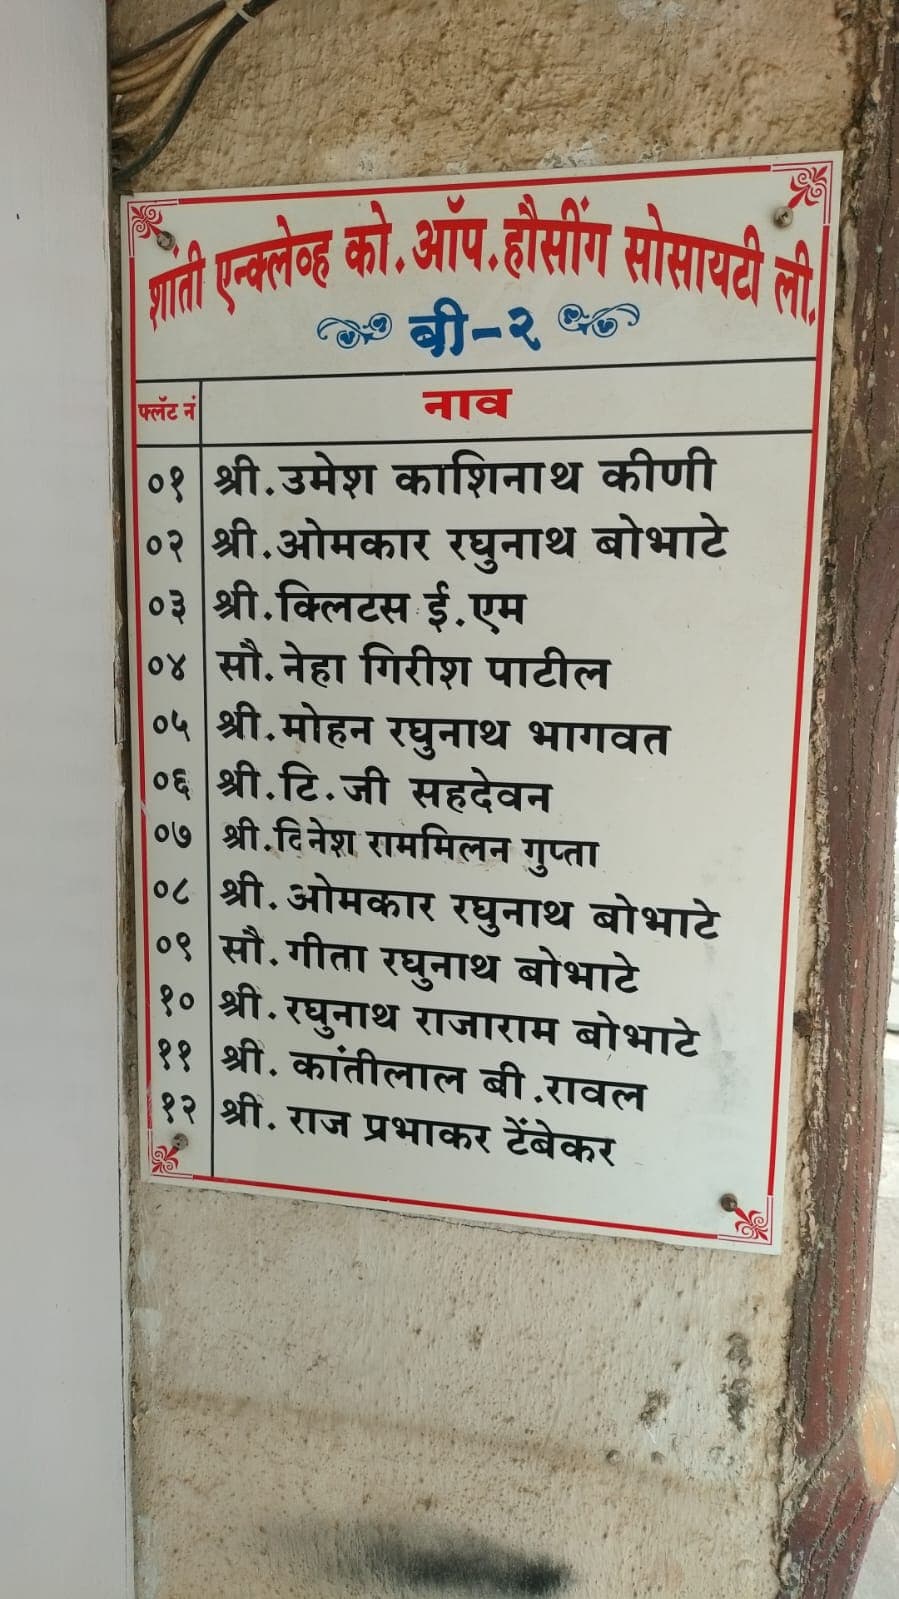 शांती एन्क्लेव्ह को. ऑप. हौसींग सोसायटी ली.
बी-२
फ्लॅट नं नाव
०१ श्री. उमेश काशिनाथ कीणी
०२ श्री. ओमकार रघुनाथ बोभाटे
०३ श्री. क्लिटस ई. एम
०४ सौ. नेहा गिरीश पाटील
०५ श्री. मोहन रघुनाथ भागवत
०६ श्री. टि. जी सहदेवन
०७ श्री. दिनेश राममिलन गुप्ता
०८ श्री. ओमकार रघुनाथ बोभाटे
०९ सौ. गीता रघुनाथ बोभाटे
१० श्री. रघुनाथ राजाराम बोभाटे
११ श्री. कांतीलाल बी. रावल
१२ श्री. राज प्रभाकर टेंबेकर